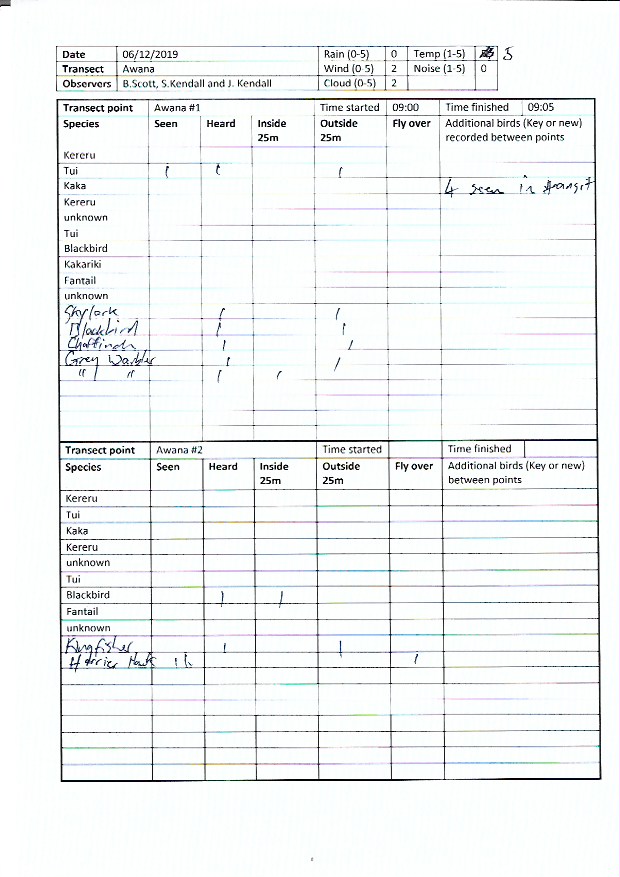 Date 06/12/2019 Rain (0-5) 0 Temp (1-5) 5
Transect Awana Wind (0-5) 2 Noise (1-5) 0
Observers B.Scott, S.Kendall and J. Kendall Cloud (0-5) 2
Transect point Awana #1 Time started 09:00 Time finished 09:05
Species Seen Heard Inside 25m Outside 25m Fly over Additional birds (Key or new) recorded between points
Kereru
Tui 1 1 1
Kaka 4 seen in transit
Kereru
unknown
Tui
Blackbird
Kakariki
Fantail
unknown
Skylark 1 1
Blackbird 1 1
Chaffinch 1 1
Grey Warbler 1 1
" " 1 1
Transect point Awana #2 Time started Time finished
Species Seen Heard Inside 25m Outside 25m Fly over Additional birds (Key or new) between points
Kereru
Tui
Kaka
Kereru
unknown
Tui
Blackbird 1 1
Fantail
unknown
Kingfisher 1 1
Harrier Hawk 1 1